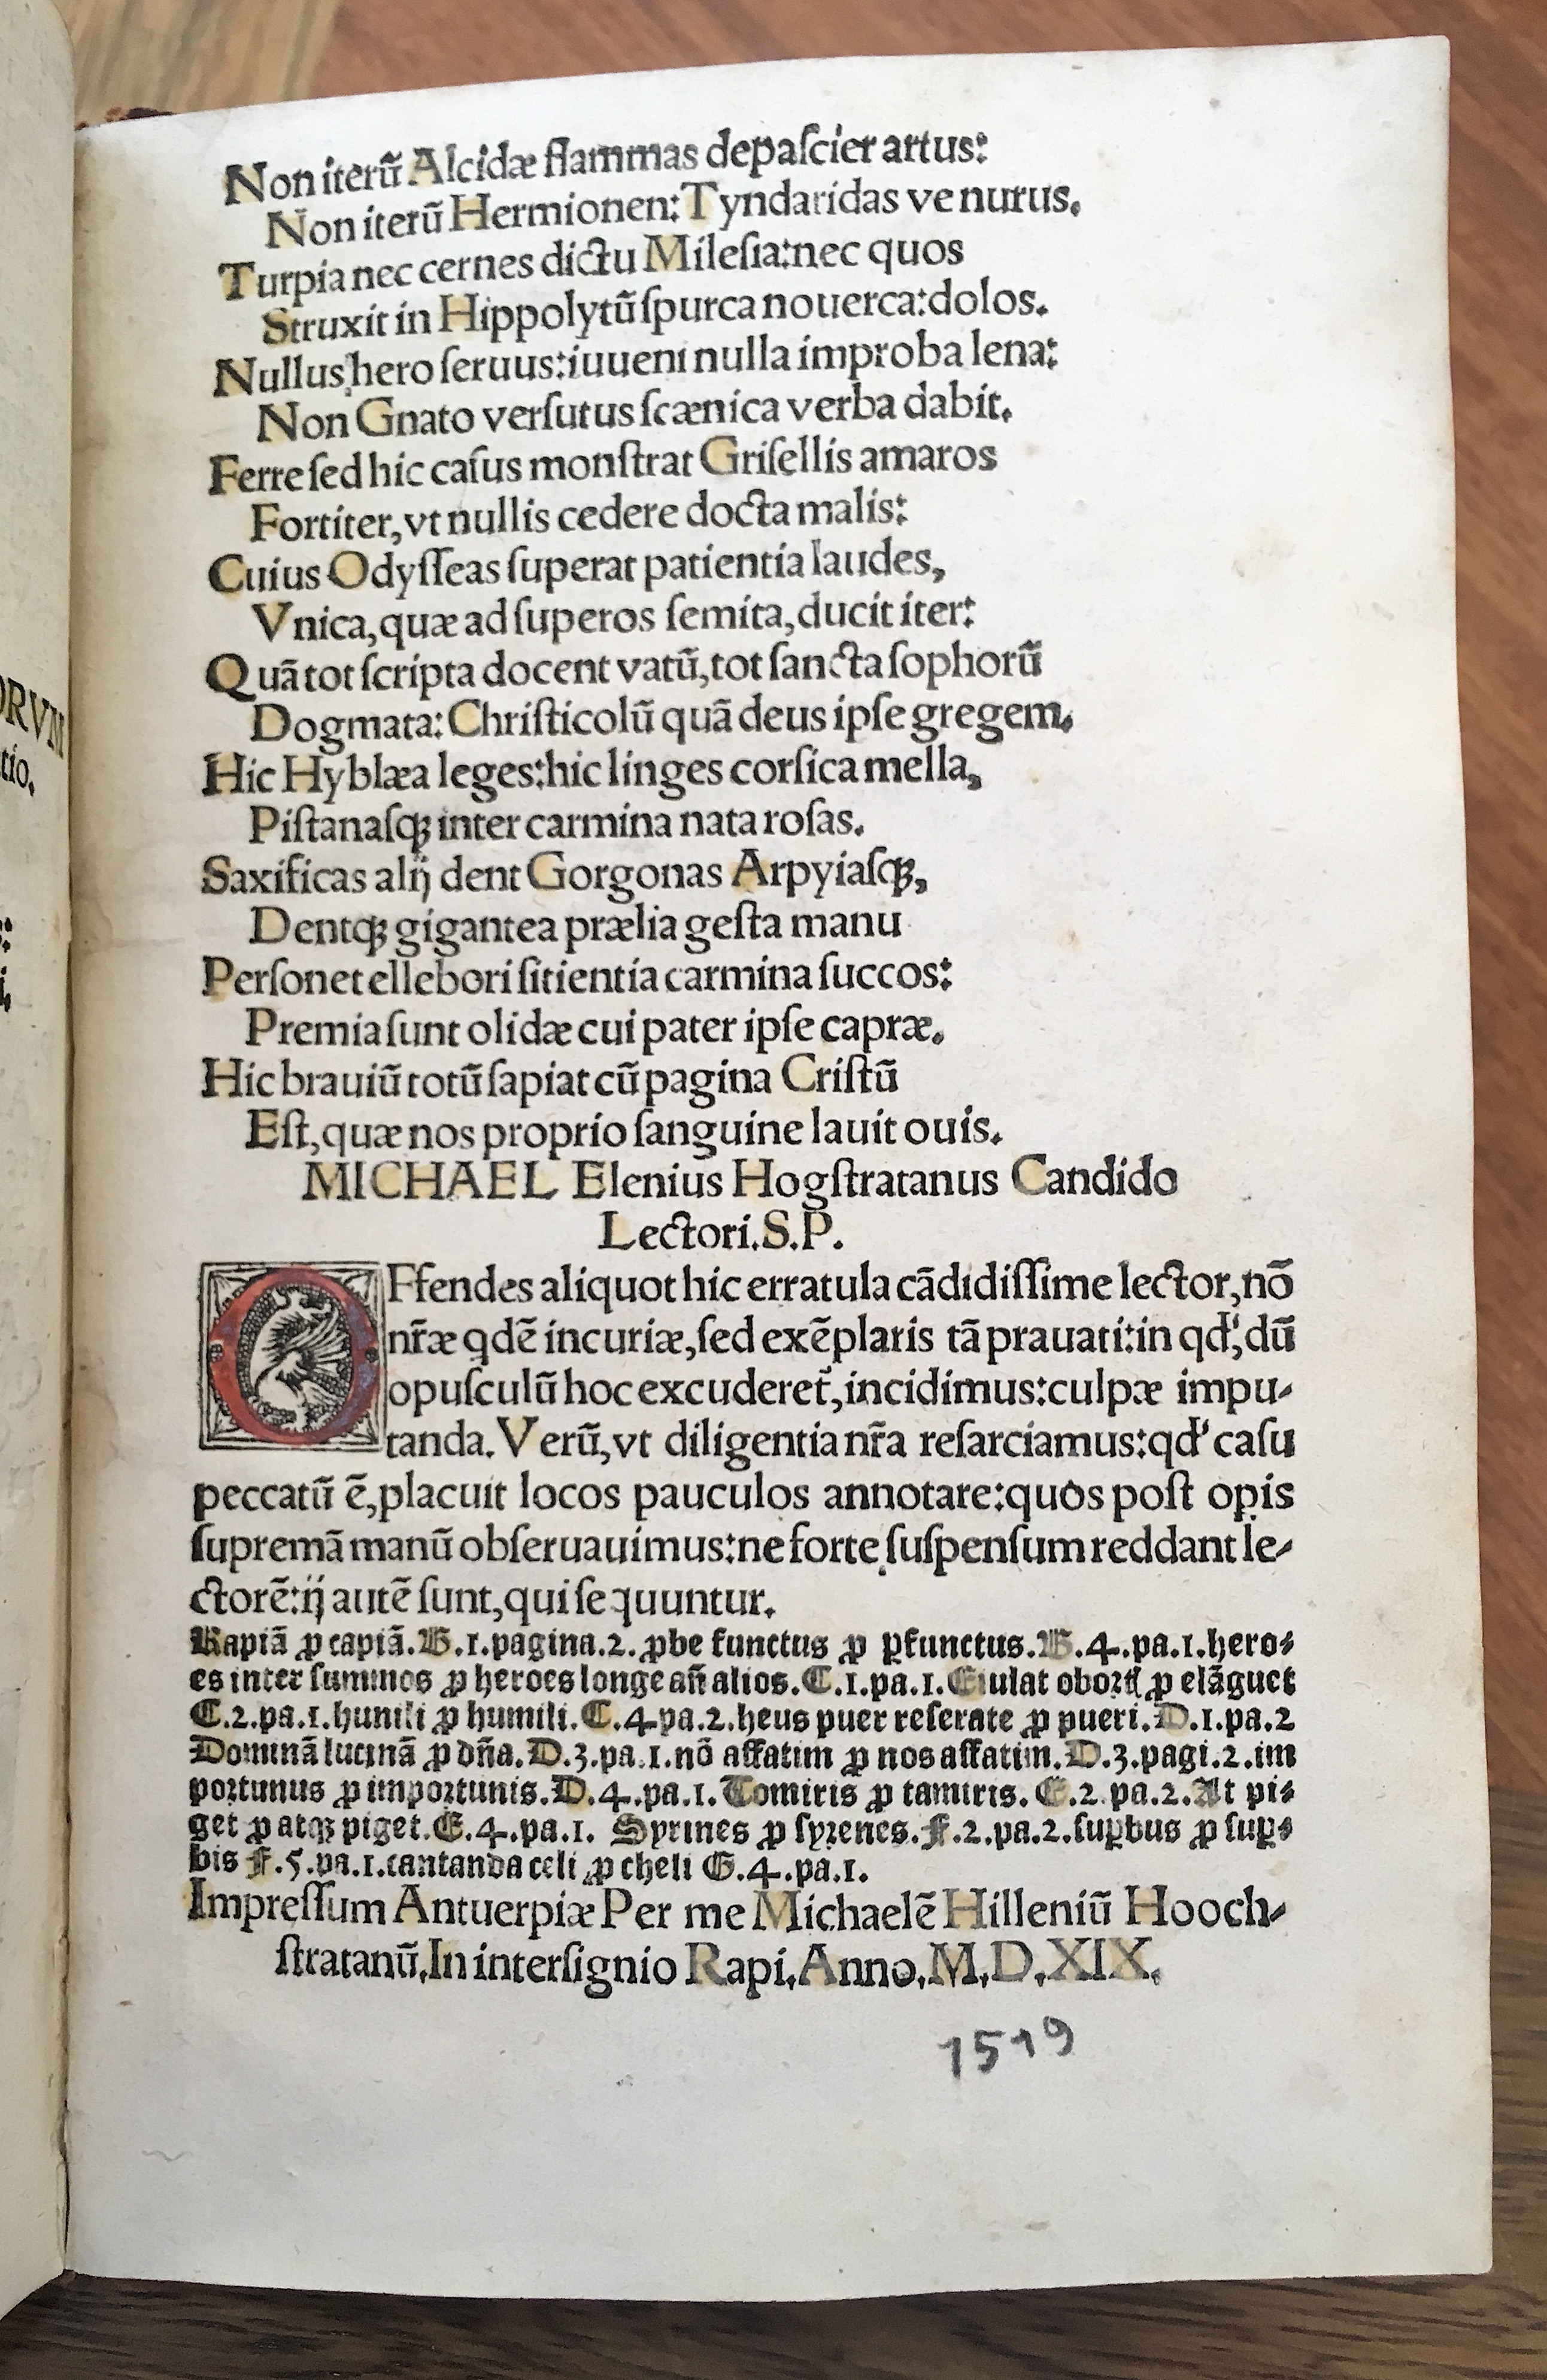 Non iterū Alcidæ flammas depaſcier artus:
Non iterū Hermionen: Tyndaridas ve nurus.
Turpia nec cernes dictu Mileſia: nec quos
Struxit in Hippolytū ſpurca nouerca: dolos.
Nullus hero ſeruus: iuueni nulla improba lena:
Non Gnato verſutus ſcænica verba dabit.
Ferre ſed hic caſus monſtrat Griſellis amaros
Fortiter, vt nullis cedere docta malis:
Cuius Odyſſeas ſuperat patientia laudes,
Vnica, quæ ad ſuperos ſemita, ducit iter:
Quā tot ſcripta docent vatū, tot ſancta ſophorū
Dogmata: Chriſticolū quā deus ipſe gregem.
Hic Hyblæa leges: hic linges corſica mella,
Piſtanaſqꝫ inter carmina nata roſas.
Saxificas alij dent Gorgonas Arpyiaſqꝫ,
Dentqꝫ gigantea prælia geſta manu
Perſonet ellebori ſitientia carmina ſuccos:
Premia ſunt olidæ cui pater ipſe capræ.
Hic brauiū totū ſapiat cū pagina Criſtū
Eſt, quæ nos proprio ſanguine lauit ouis.
MICHAEL Elenius Hogſtratanus Candido
Lectori. S. P.
OFfendes aliquot hic erratula cādidiſſime lector, nō
nr̄æ qdē incuriæ, ſed exēplaris tā prauati: in qd', dū
opuſculū hoc excuderet̄, incidimus: culpæ impu-
tanda. Verū, vt diligentia nr̄a reſarciamus: qd' caſu
peccatū ē, placuit locos pauculos annotare: quos poſt opis
ſupremā manū obſeruauimus: ne forte ſuſpenſum reddant le-
ctorē: ij autē ſunt, qui ſe quuntur.
Rapiā ꝓ capiā. B.1.pagina.2. ꝓbe functus ꝓ ꝑfunctus. B.4.pa.1. hero-
es inter ſummos ꝓ heroes longe añ alios. C.1.pa.1. Eiulat ꝓ elāguet
C.2.pa.1. hunili ꝓ humili. C.4.pa.2. heus puer reſerate ꝓ pueri. D.1.pa.2
Dominā lucinā ꝓ dñā. D.3.pa.1. nō affatim ꝓ nos affatim. D.3.pagi.2. im
portunus ꝓ importunis. D.4.pa.1. Tomiris ꝓ tamiris. E.2.pa.2. At pi-
get ꝓ atqꝫ piget. E.4.pa.1. Syrines ꝓ ſyrenes. F.2.pa.2. ſuꝑbus ꝓ ſuꝑ-
bis F.5.pa.1. cantanda celi ꝓ cheli G.4.pa.1.
Impreſſum Antuerpiæ Per me Michaelē Hilleniū Hooch-
ſtratanū. In interſignio Rapi. Anno. M.D.XIX.
1519
ORVM
tio.